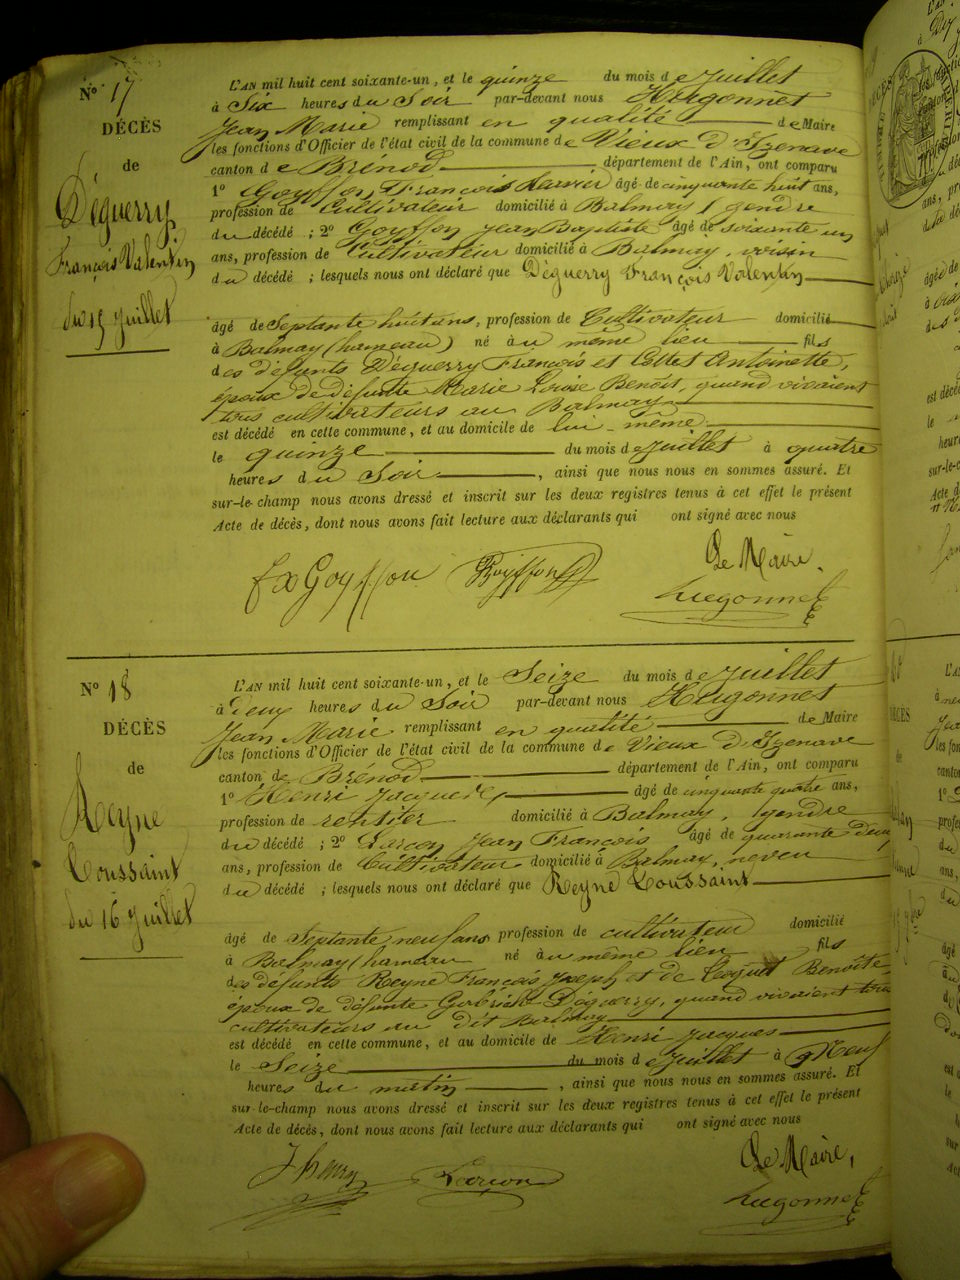 N° 17
DÉCÈS
de
Déguerry
François Valentin
du 15 Juillet
L'AN mil huit cent soixante-un, et le quinze du mois de Juillet
à Six heures du Soir par-devant nous Hugonnet
Jean Marie remplissant en qualité de Maire
les fonctions d'Officier de l'état civil de la commune de Vieux d'Izenave
canton de Brénod département de l'Ain, ont comparu
1° Goyffon, François Xavier âgé de cinquante huit ans,
profession de Cultivateur domicilié à Balmay, gendre
du décédé ; 2° Goyffon Jean Baptiste âgé de soixante un
ans, profession de Cultivateur domicilié à Balmay, voisin
du décédé ; lesquels nous ont déclaré que Déguerry François Valentin
âgé de Septante huit ans, profession de Cultivateur domicilié
à Balmay (hameau) né au même lieu fils
des défunts Déguerry François et Antoinette,
époux de défunte Marie Louise Benoît, quand vivaient
tous cultivateurs au Balmay
est décédé en cette commune, et au domicile de lui-même
le quinze du mois de Juillet à quatre
heures du Soir , ainsi que nous nous en sommes assuré. Et
sur-le-champ nous avons dressé et inscrit sur les deux registres tenus à cet effet le présent
Acte de décès, dont nous avons fait lecture aux déclarants qui ont signé avec nous
fx Goyffon Goyffon Le Maire.
Hugonnet
N° 18
DÉCÈS
de
Reyne
Toussaint
du 16 Juillet
L'AN mil huit cent soixante-un, et le Seize du mois de Juillet
à Deux heures du Soir par-devant nous Hugonnet
Jean Marie remplissant en qualité de Maire
les fonctions d'Officier de l'état civil de la commune de Vieux d'Izenave
canton de Brénod département de l'Ain, ont comparu
1° Henri Jacques, âgé de cinquante quatre ans,
profession de rentier domicilié à Balmay, gendre
du décédé ; 2° Larçon Jean François âgé de quarante deux
ans, profession de Cultivateur domicilié à Balmay, neveu
du décédé ; lesquels nous ont déclaré que Reyne Toussaint
âgé de Septante neuf ans profession de cultivateur domicilié
à Balmay (hameau né au même lieu fils
des défunts Reyne François Joseph et de Benoîte
époux de défunte Gabrielle Déguerry, quand vivaient tous
cultivateurs au dit Balmay
est décédé en cette commune, et au domicile de Henri Jacques
le Seize du mois de Juillet à Neuf
heures du matin , ainsi que nous nous en sommes assuré. Et
sur-le-champ nous avons dressé et inscrit sur les deux registres tenus à cet effet le présent
Acte de décès, dont nous avons fait lecture aux déclarants qui ont signé avec nous
J henry Larçon Le Maire,
Hugonnet